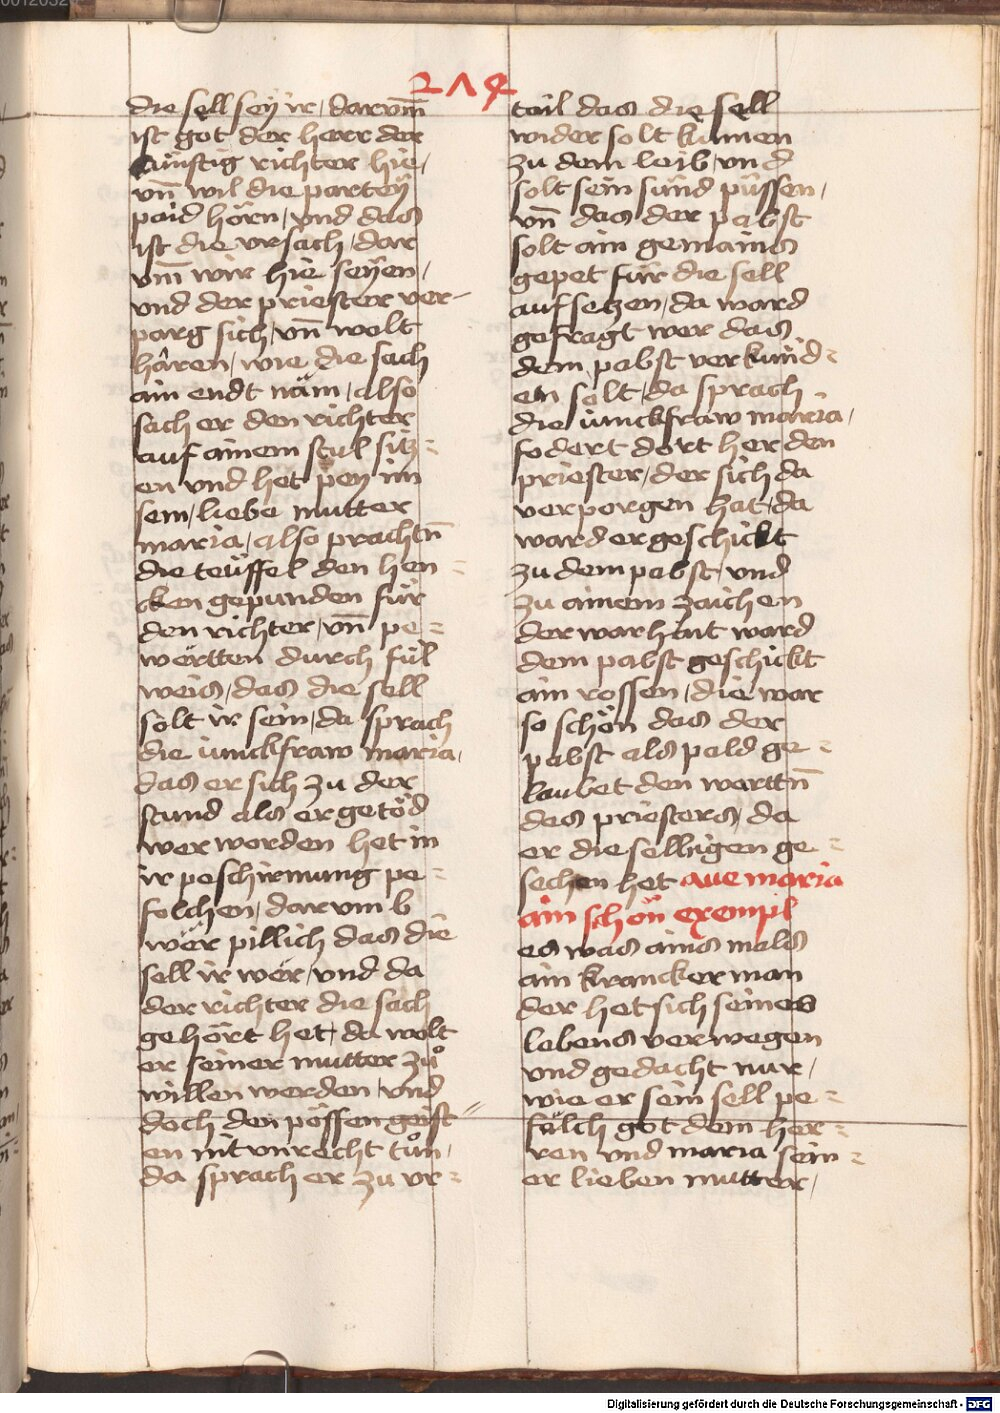 214
die sell sey ir / darum̄
ist got der herr der
künftig richter hie /
vn̄ wil die partey
paid hörn / vnd das
ist die vrsach / dar
vm̄ wir hie seyen /
vnd der priester ver-
parg sich / vn̄ wolt
hären / wie die sach
ain endt näm / also
sach er den richter
auf ainem stul sitz=
en vnd het pey im
sein / liebe mutter
maria / also prachtn̄
die teüffel den hen=
cken gepunden für
den richter / vn̄ pe=
wërtten durch fül
weis / das die sell
solt ir sein / da sprach
die iunckfraw maria /
das er sich zu der
stund als er getöd
wer worden het in
ir peschirmung pe=
folchen / darvmb
wër pillich das die
sell ir wër / vnd da
der richter die sach
gehört het / da wolt
er seiner mutter zů
willen werden / vnd
doch den pössen geist=
en nit vnrecht tůn /
da sprach er zu vr=
tail das die sell
wider solt kumen
zu dem leib / vnd
solt sein sünd püssen /
vn̄ das der pabst
solt ain gemains
gepet für die sell
auf seczen / da ward
gefragt wer das
dem pabst verkünd=
en solt / da sprach
die iunckfraw maria /
fodert dort her den
priester / der sich da
verporgen hat / da
ward er geschickt
zu dem pabst / vnd
zu ainem zaichen
der warhait ward
dem pabst geschickt
ain rossen / die war
so schön das der
pabst als pald ge=
laubet den worttn̄
des priesters / da
er die selbigen ge=
sechen het aue maria
ain schön exempl
es was ains mals
ain krancker man
der het sich seines
lebens verwegen
vnd gedacht nur /
wie er sein sell pe=
fülch got dem her=
ren vnd maria sein=
er lieben mutter /
Digitalisierung gefördert durch die Deutsche Forschungsgemeinschaft - DFG